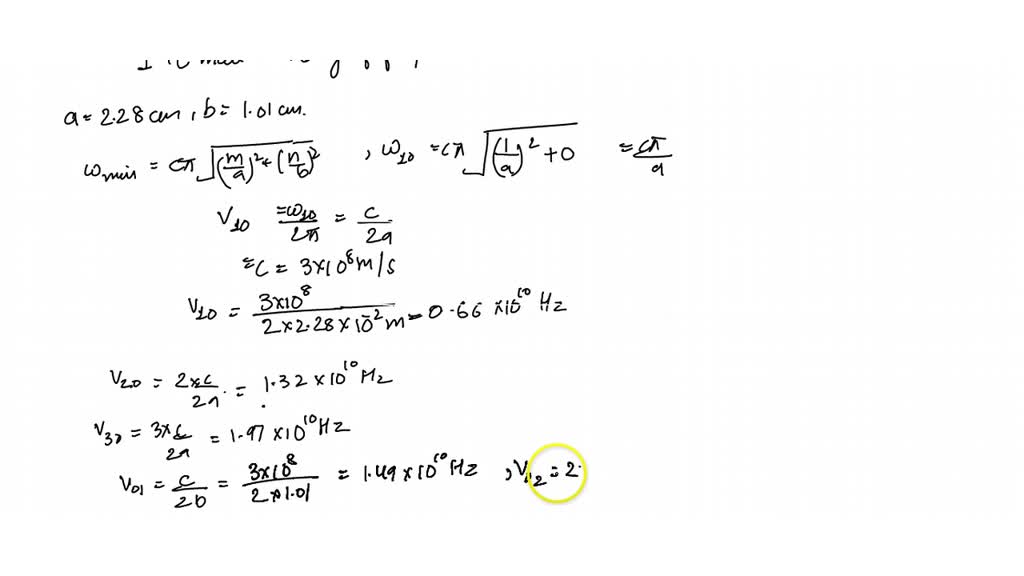 a = 2.28 cm, b = 1.01 cm.
ω_min = cπ√((m/a)² + (n/b)²) , ω_10 = cπ√((1/a)² + 0) = cπ/a
V_10 = ω_10/2π = c/2a
= C = 3×10^8 m/s
V_10 = 3×10^8 / 2×2.28×10^-2 m = 0.66 ×10^10 Hz
V_20 = 2×c/2a = 1.32 ×10^10 Hz
V_30 = 3×c/2a = 1.97 ×10^10 Hz
V_01 = c/2b = 3×10^8 / 2×1.01 = 1.49 ×10^10 Hz , V_12 = 2.